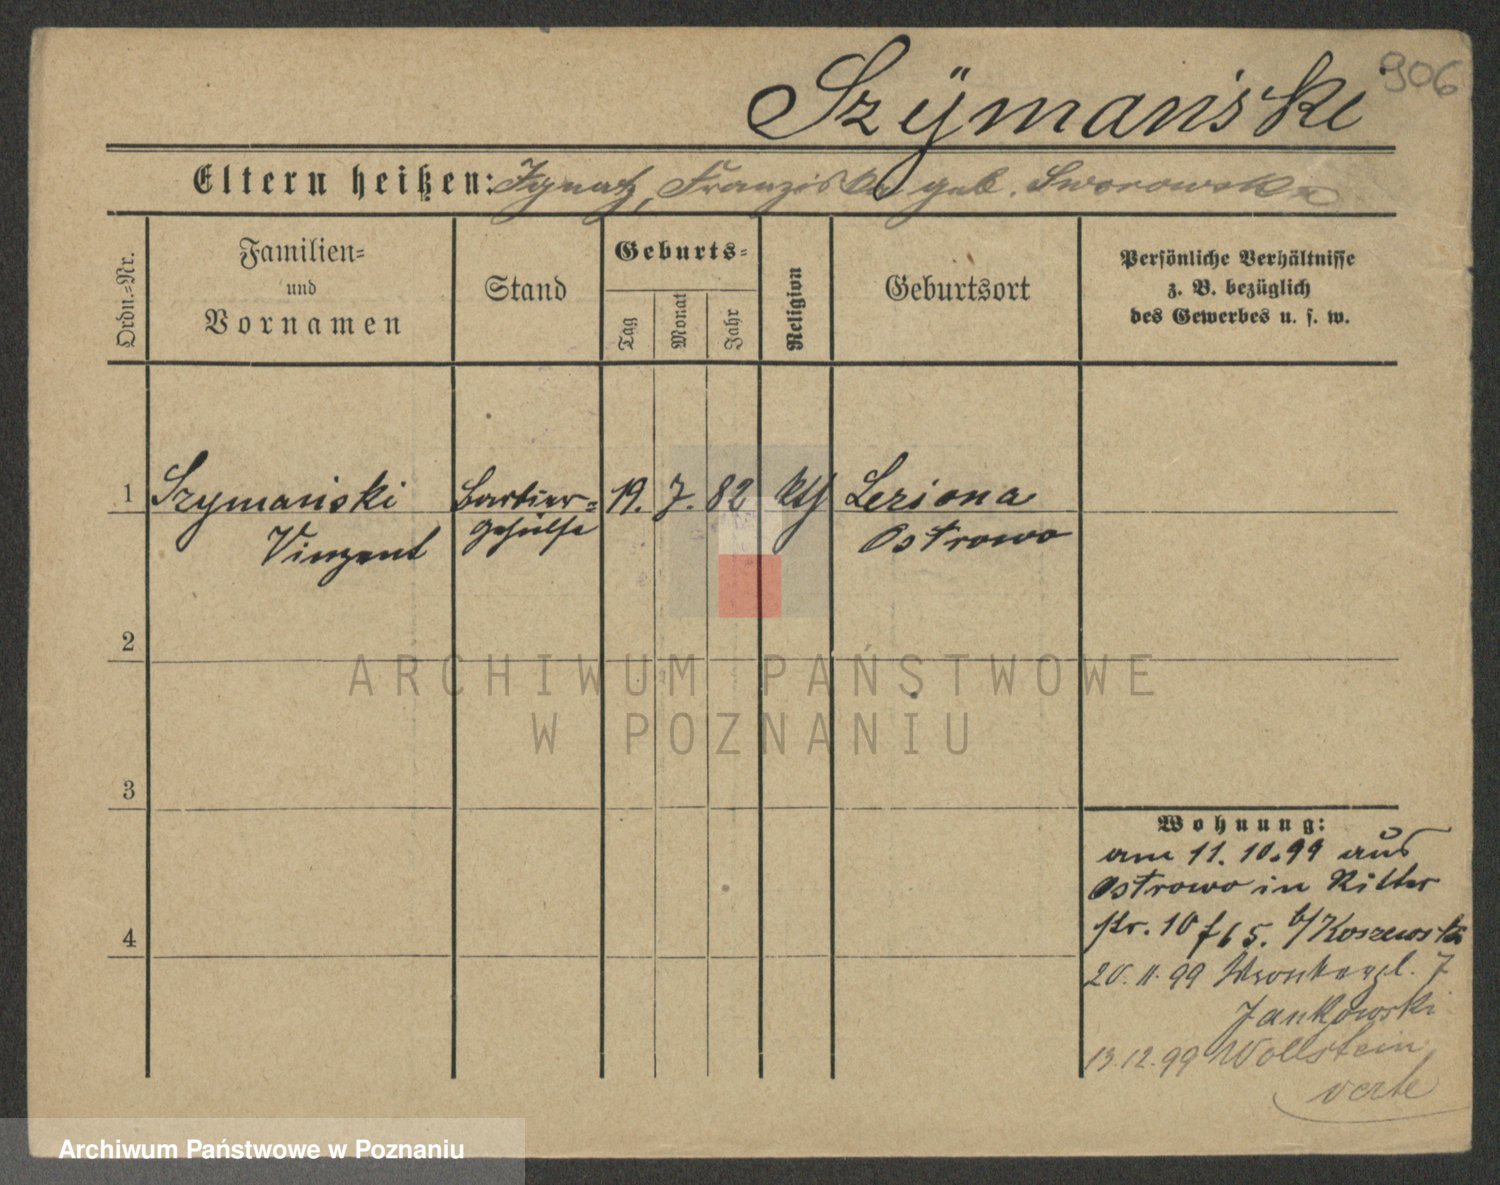 906
Szÿmański
Eltern heißen: Ignatz, Franziska geb. Sworowska
Ordn.-Nr.
Familien-
und
Vornamen
Stand
Geburts-
Tag
Monat
Jahr
Religion
Geburtsort
Persönliche Verhältnisse
z. B. bezüglich
des Gewerbes u. s. w.
1 Szymański Barbier- 19. 7. 82 kth Leziona
Vinzent gehülfe Ostrowo
2
ARCHIWUM PAŃSTWOWE
W POZNANIU
3
Wohnung:
am 11. 10. 99 aus
Ostrowo in Ritter
str. 10 b/Koszewski
4
20. 11. 99 7
Jankowski
13. 12. 99 Wollstein
verte
Archiwum Państwowe w Poznaniu